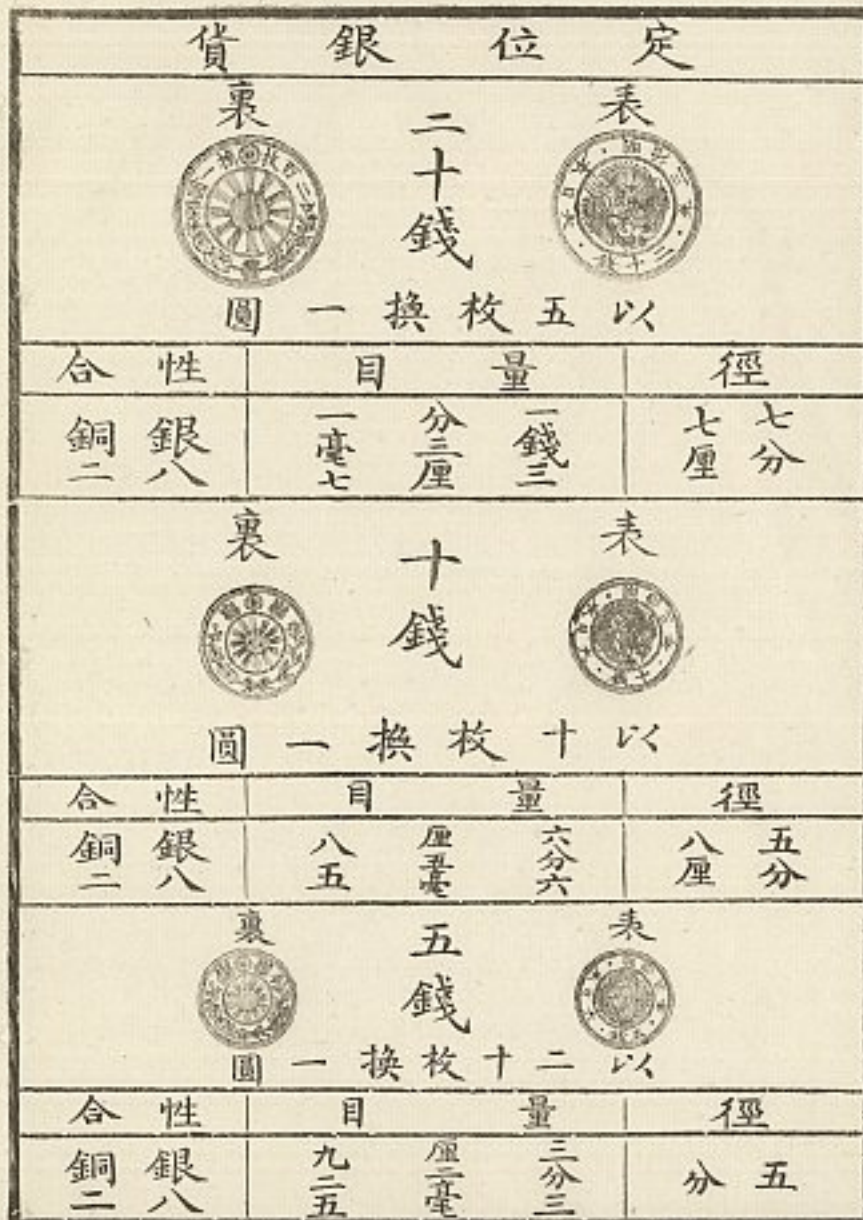 定位銀貨
表
二十錢
裏
以五枚換一圓
徑
量目
性合
七分
七厘
一錢三
分三厘
一毫七
銀八
銅二
表
十錢
裏
以十枚換一圓
徑
量目
性合
五分
八厘
六分六
厘五毫
八五
銀八
銅二
表
五錢
裏
以二十枚換一圓
徑
量目
性合
五分
三分三
厘二毫
九二五
銀八
銅二